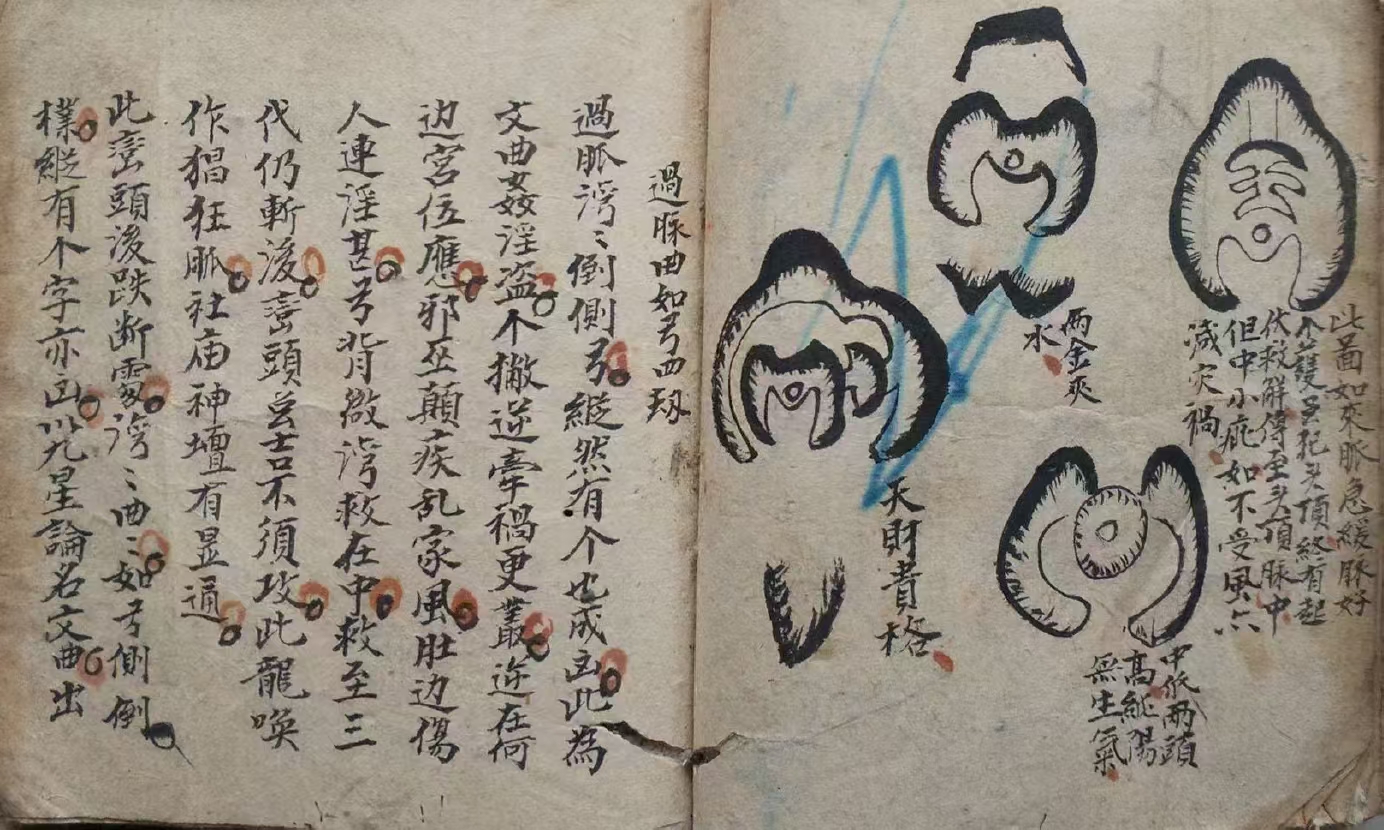 此圖如來脈急緩脉好
个護无犯头頂終有起
伏救解傳至头頂脉中
但中小疵如不受風六
減灾禍
两金夾
水
中低两頭
高純陽
無生氣
天財貴格
過脉曲如弓西场
過脈湾〻倒側弓縱然有个也成凶此為
文曲姦淫盗个撇逆牽禍更叢逆在何
边宮位應邪巫顛疾乱家風肚边傷
人連淫甚弓背微湾救在中救至三
代仍斬後巒頭兰吉不須攻此龍喚
作猖狂脈社庙神壇有显通
此巒頭後跌断處湾〻曲〻如弓側倒
樣縱有个字亦凶以九星論名文曲出